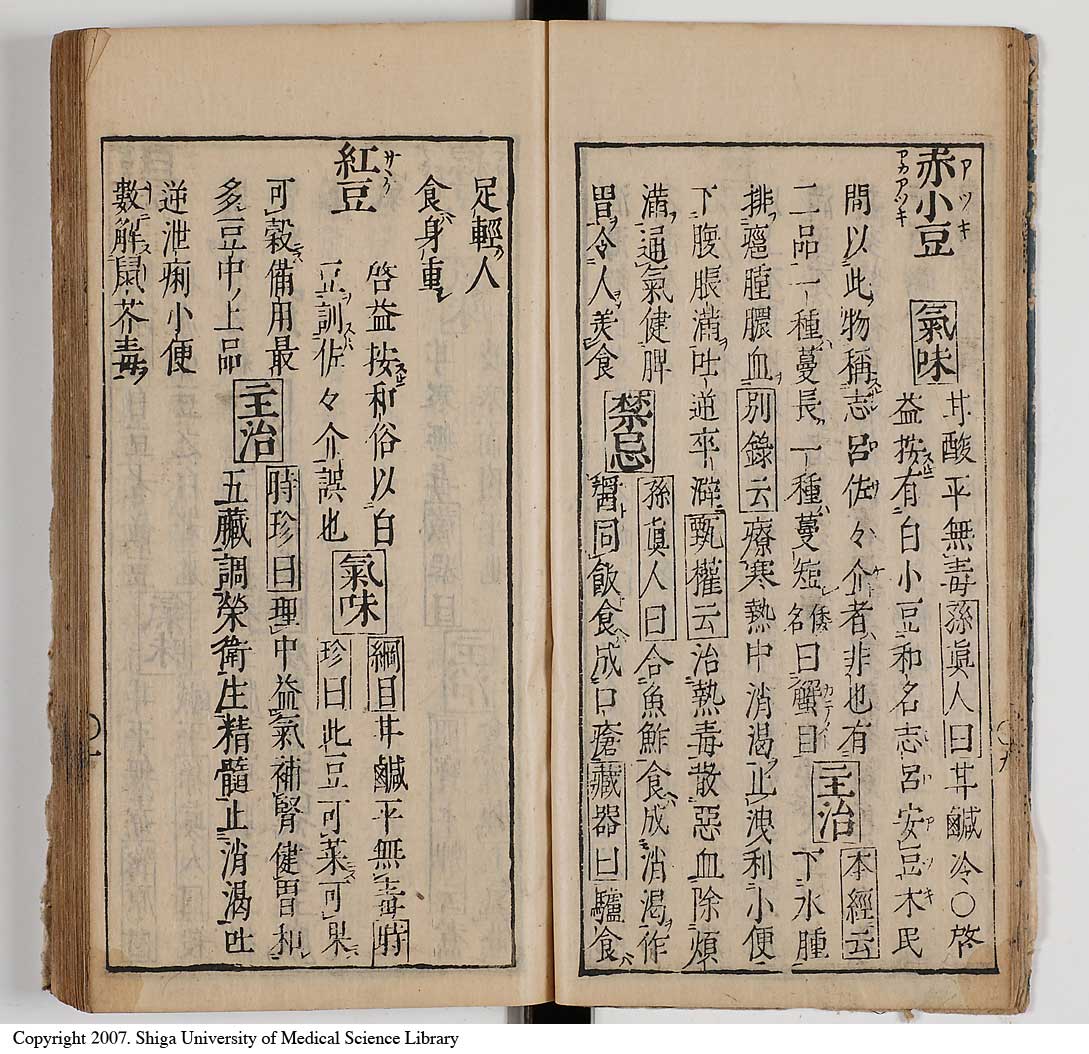 赤小豆 氣味 甘酸平無毒孫眞人曰甘鹹冷〇啓
益按有白小豆和名志呂安豆木民
間以此物稱志呂佐々介者非也有
二品一種蔓長一種蔓短倭名曰蟹目 主治 本經云下水腫
排癰腫膿血別錄云療寒熱中消渴止洩利小便
下腹脹滿吐逆卒澼甄權云治熱毒散惡血除煩
滿通氣健脾胃令人美食 禁忌 孫眞人曰合魚鮓食成消渴作
醬同飯食成口瘡藏器曰驢食
足輕人食身重
紅豆 啓益按和俗以白
豆訓佐々介誤也 氣味 綱目甘鹹平無毒時
珍曰此豆可菜可果
可穀備用最多豆中ノ上品 主治 時珍曰理中益氣補腎健胃和
五臟調榮衛生精髓止消渴吐
逆泄痢小便數解鼠芥毒
Copyright 2007. Shiga University of Medical Science Library